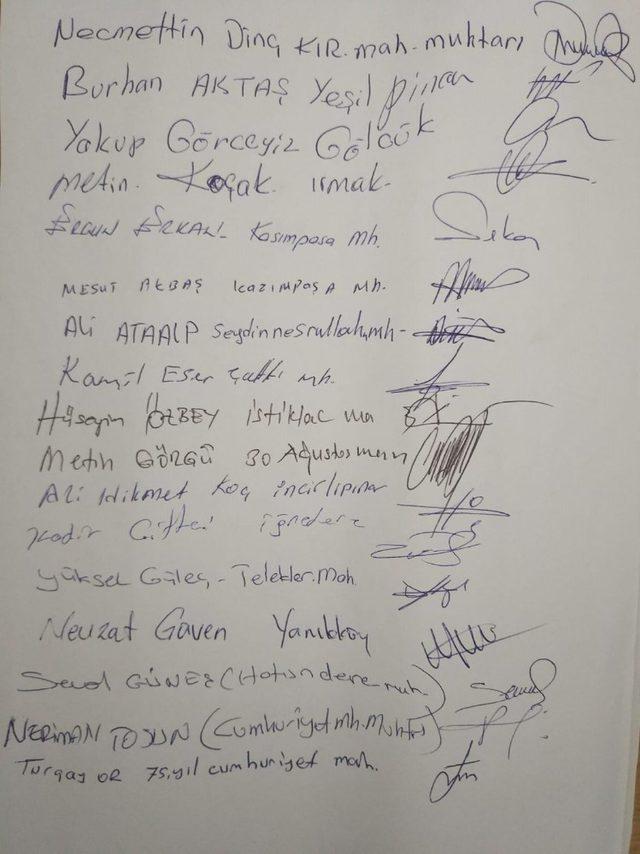 Necmettin Dinç KIR. mah. muhtarı
Burhan AKTAŞ Yeşil pınar
Yakup Görceyiz Gölcük
Metin. Koçak. ırmak-
Ergun Erkan- Kasımpaşa mh.
MESUT AKBAŞ KAZIMPAŞA Mh.
Ali ATAALP Seydinnesrullah, mh-
Kamil Eser Çaltı mh.
Hüseyin ÖZBEY istiklac ma
Metin GÖRGÜ 30 Ağustos
Ali Hikmet Koç incirlipınar
Kadir Çiftci iğredere
Yüksel Güleç - Telekler. Mah.
Nevzat Güven Yanıkköy
GÜNEŞ (Hatundere muh.)
NERİMAN TOSUN (Cumhuriyet mh. Muhtarı)
Turgay OR 75. yıl cumhuriyet mah.